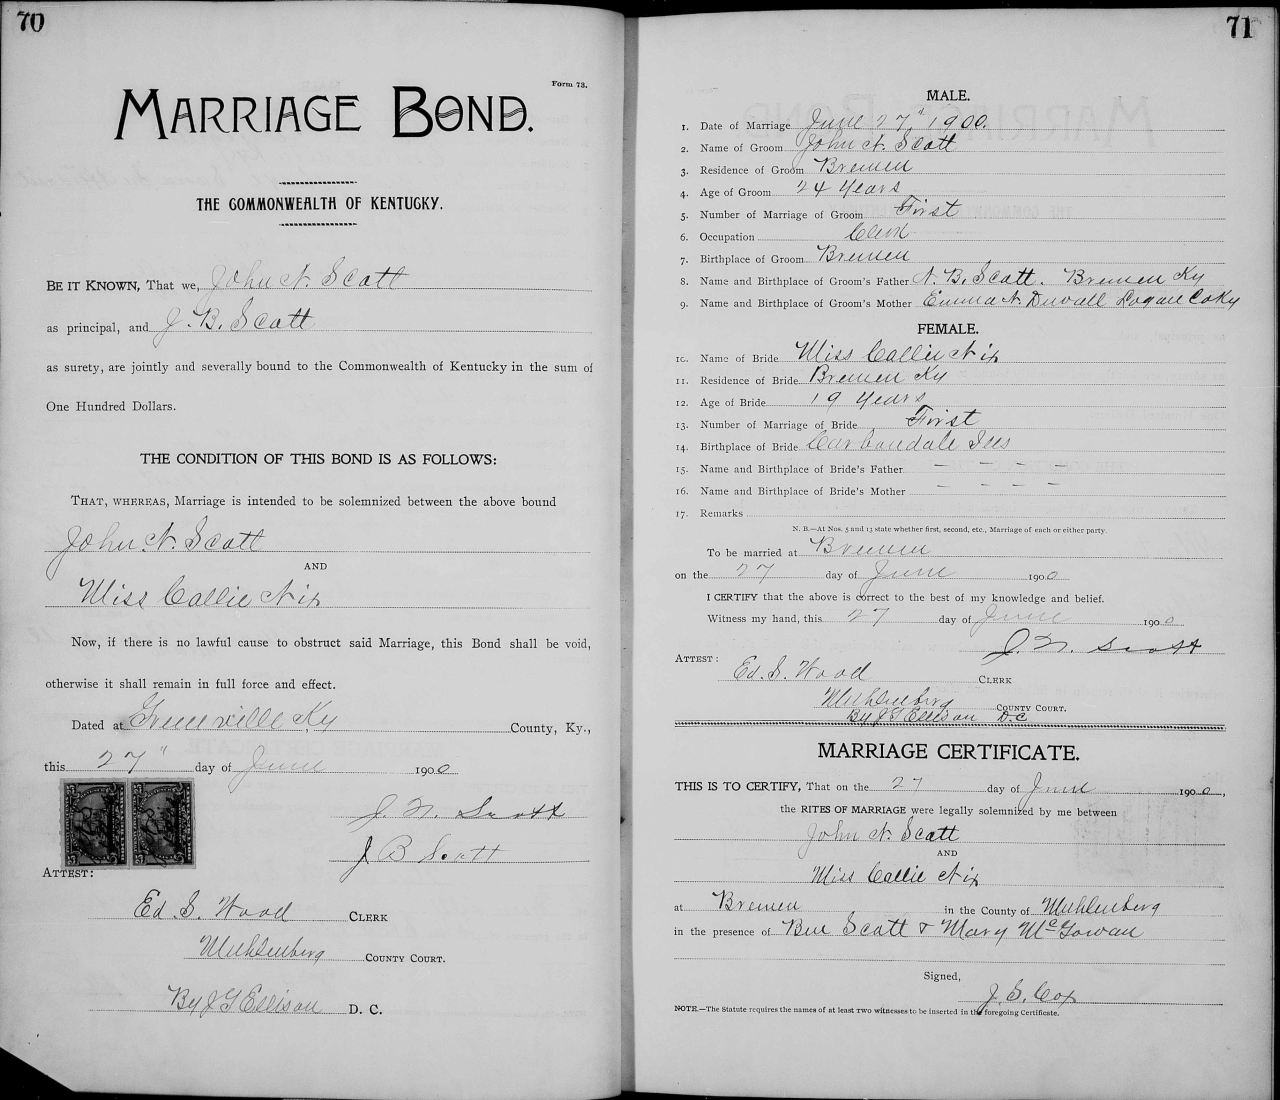 70
Form 73.
MARRIAGE BOND.
THE COMMONWEALTH OF KENTUCKY.
BE IT KNOWN, That we, John N. Scott
as principal, and J. B. Scott
as surety, are jointly and severally bound to the Commonwealth of Kentucky in the sum of
One Hundred Dollars.
THE CONDITION OF THIS BOND IS AS FOLLOWS:
THAT, WHEREAS, Marriage is intended to be solemnized between the above bound
John N. Scott
AND
Miss Callie Nix
Now, if there is no lawful cause to obstruct said Marriage, this Bond shall be void,
otherwise it shall remain in full force and effect.
Dated at Greenville, Ky County, Ky.,
this 27" day of June 1900
J. N. Scott
J B Scott
ATTEST:
Ed. S. Wood CLERK
Muhlenberg COUNTY COURT.
By J G Ellison D. C.
71
MALE.
1. Date of Marriage June 27" 1900.
2. Name of Groom John N. Scott
3. Residence of Groom Bremen
4. Age of Groom 24 Years
5. Number of Marriage of Groom First
6. Occupation Clerk
7. Birthplace of Groom Bremen
8. Name and Birthplace of Groom's Father N. B. Scott. Bremen Ky
9. Name and Birthplace of Groom's Mother Emma N. Duvall Logan Co Ky
FEMALE.
10. Name of Bride Miss Callie Nix
11. Residence of Bride Bremen Ky
12. Age of Bride 19 Years
13. Number of Marriage of Bride First
14. Birthplace of Bride Carbondale Ills
15. Name and Birthplace of Bride's Father – – – –
16. Name and Birthplace of Bride's Mother – – – –
17. Remarks
N. B.—At Nos. 5 and 13 state whether first, second, etc., Marriage of each or either party.
To be married at Bremen
on the 27 day of June 1900
I CERTIFY that the above is correct to the best of my knowledge and belief.
Witness my hand, this 27 day of June 1900
J. N. Scott
ATTEST:
Ed. S. Wood CLERK
Muhlenberg COUNTY COURT.
By J G Ellison D.C
MARRIAGE CERTIFICATE.
THIS IS TO CERTIFY, That on the 27 day of June 1900,
the RITES OF MARRIAGE were legally solemnized by me between
John N. Scott
AND
Miss Callie Nix
at Bremen in the County of Muhlenberg
in the presence of Ben Scott & Mary McGowan
Signed,
J. S. Cox
NOTE.—The Statute requires the names of at least TWO witnesses to be inserted in the foregoing Certificate.